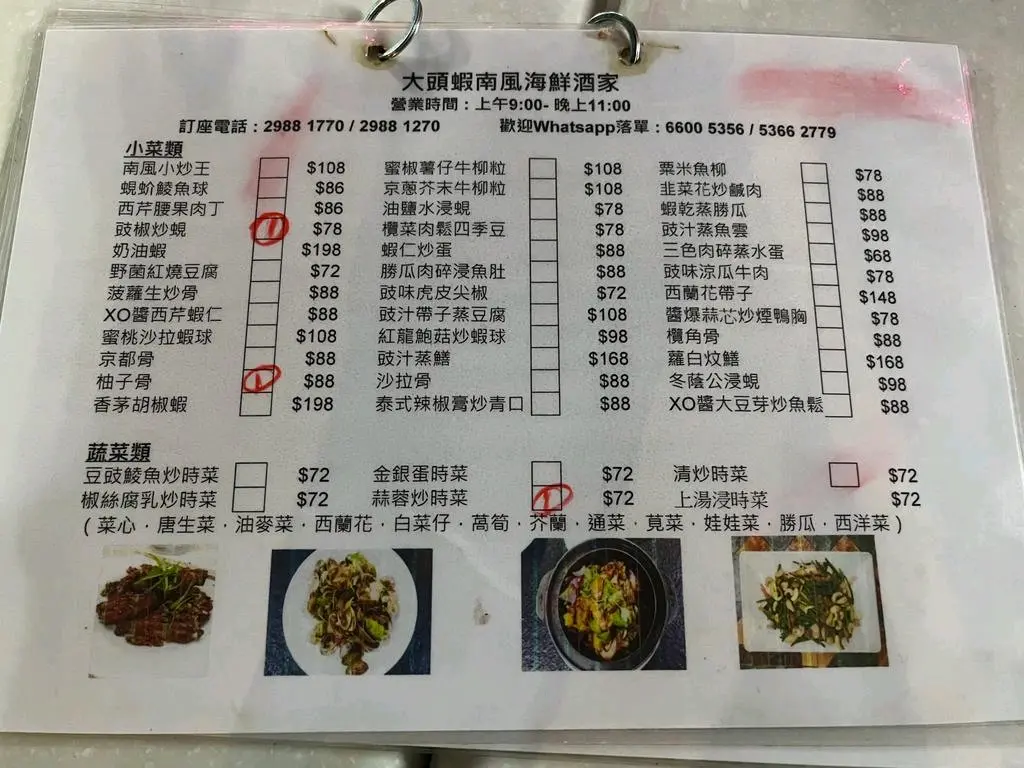 大頭蝦南風海鮮酒家
營業時間：上午9:00- 晚上11:00
訂座電話：2988 1770 / 2988 1270 歡迎Whatsapp落單：6600 5356 / 5366 2779
小菜類
南風小炒王 $108 蜜椒薯仔牛柳粒 $108 粟米魚柳 $78
蜆蚧鯪魚球 $86 京蔥芥末牛柳粒 $108 韭菜花炒鹹肉 $88
西芹腰果肉丁 $86 油鹽水浸蜆 $78 蝦乾蒸勝瓜 $88
豉椒炒蜆 1 $78 欖菜肉鬆四季豆 $78 豉汁蒸魚雲 $98
奶油蝦 $198 蝦仁炒蛋 $88 三色肉碎蒸水蛋 $68
野菌紅燒豆腐 $72 勝瓜肉碎浸魚肚 $88 豉味涼瓜牛肉 $78
菠蘿生炒骨 $88 豉味虎皮尖椒 $72 西蘭花帶子 $148
XO醬西芹蝦仁 $88 豉汁帶子蒸豆腐 $108 醬爆蒜芯炒煙鴨胸 $78
蜜桃沙拉蝦球 $108 紅龍鮑菇炒蝦球 $98 欖角骨 $88
京都骨 $88 豉汁蒸鱔 $168 蘿白炆鱔 $168
柚子骨 1 $88 沙拉骨 $88 冬蔭公浸蜆 $98
香茅胡椒蝦 $198 泰式辣椒膏炒青口 $88 XO醬大豆芽炒魚鬆 $88
蔬菜類
豆豉鯪魚炒時菜 $72 金銀蛋時菜 $72 清炒時菜 $72
椒絲腐乳炒時菜 $72 蒜蓉炒時菜 1 $72 上湯浸時菜 $72
( 菜心．唐生菜．油麥菜．西蘭花．白菜仔．萵筍．芥蘭．通菜．莧菜．娃娃菜．勝瓜．西洋菜 )